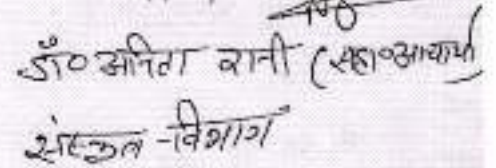 डॉ० अनिता रानी (सहा० आचार्या)
संस्कृत - विभाग